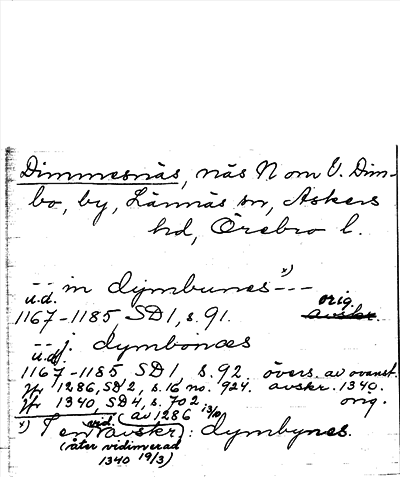 Dimmesnäs, näs N om V. Dim-
bo, by, Lännäs sn, Askers
hd, Örebro l.
-- in dymbunes x) ---
u.d. orig.
1167-1185 SD1, s. 91. avskr.
-- j. dymbonæs
u.d.
1167-1185 SD1, s. 92. övers. av ovanst.
Jfr 1286, SD2, s. 16 no. 924. avskr. 1340.
Jfr 1340, SD4, s. 702. orig.
x) I en vid. avskr (av 1286 13/10): dymbynes.
(åter vidimerad
1340 19/3)